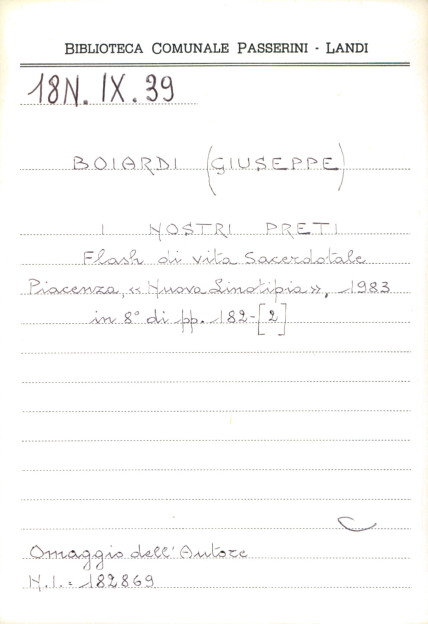 BIBLIOTECA COMUNALE PASSERINI - LANDI
18N. IX. 39
BOIARDI (GIUSEPPE)
I NOSTRI PRETI
Flash di vita Sacerdotale
Piacenza, « Nuova Linotipia », 1983
in 8° di pp. 182-[2]
Omaggio dell'Autore
N.I.: 182869